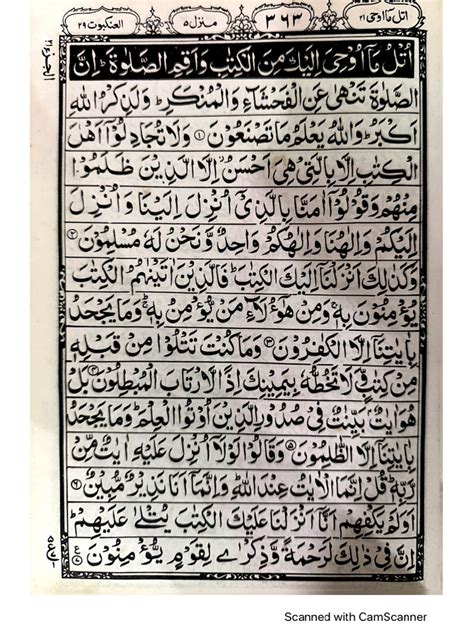 اتل ما اوحی ۲۱
۳۶۳
منزل ۵
العنكبوت ۲۹
اُتْلُ مَاۤ اُوْحِیَ اِلَیْكَ مِنَ الْكِتٰبِ وَاَقِمِ الصَّلٰوةَ ؕ اِنَّ
الصَّلٰوةَ تَنْهٰی عَنِ الْفَحْشَآءِ وَالْمُنْكَرِ ؕ وَلَذِكْرُ اللّٰهِ
اَكْبَرُ ؕ وَاللّٰهُ یَعْلَمُ مَا تَصْنَعُوْنَ ۝۱ وَلَا تُجَادِلُوْۤا اَهْلَ
الْكِتٰبِ اِلَّا بِالَّتِیْ هِیَ اَحْسَنُ ۖ اِلَّا الَّذِیْنَ ظَلَمُوْا
مِنْهُمْ وَقُوْلُوْۤا اٰمَنَّا بِالَّذِیْۤ اُنْزِلَ اِلَیْنَا وَاُنْزِلَ
اِلَیْكُمْ وَاِلٰهُنَا وَاِلٰهُكُمْ وَاحِدٌ وَّنَحْنُ لَهٗ مُسْلِمُوْنَ ۝۲
وَكَذٰلِكَ اَنْزَلْنَاۤ اِلَیْكَ الْكِتٰبَ ؕ فَالَّذِیْنَ اٰتَیْنٰهُمُ الْكِتٰبَ
یُؤْمِنُوْنَ بِهٖ ۚ وَمِنْ هٰۤؤُلَآءِ مَنْ یُّؤْمِنُ بِهٖ ؕ وَمَا یَجْحَدُ
بِاٰیٰتِنَاۤ اِلَّا الْكٰفِرُوْنَ ۝۳ وَمَا كُنْتَ تَتْلُوْا مِنْ قَبْلِهٖ
مِنْ كِتٰبٍ وَّلَا تَخُطُّهٗ بِیَمِیْنِكَ اِذًا لَّارْتَابَ الْمُبْطِلُوْنَ ۝۴ بَلْ
هُوَ اٰیٰتٌۢ بَیِّنٰتٌ فِیْ صُدُوْرِ الَّذِیْنَ اُوْتُوا الْعِلْمَ ؕ وَمَا یَجْحَدُ
بِاٰیٰتِنَاۤ اِلَّا الظّٰلِمُوْنَ ۝۵ وَقَالُوْا لَوْلَاۤ اُنْزِلَ عَلَیْهِ اٰیٰتٌ مِّنْ
رَّبِّهٖ ؕ قُلْ اِنَّمَا الْاٰیٰتُ عِنْدَ اللّٰهِ ؕ وَاِنَّمَاۤ اَنَا نَذِیْرٌ مُّبِیْنٌ ۝۶
اَوَلَمْ یَكْفِهِمْ اَنَّاۤ اَنْزَلْنَا عَلَیْكَ الْكِتٰبَ یُتْلٰی عَلَیْهِمْ ؕ
اِنَّ فِیْ ذٰلِكَ لَرَحْمَةً وَّذِكْرٰی لِقَوْمٍ یُّؤْمِنُوْنَ ۝
Scanned with CamScanner